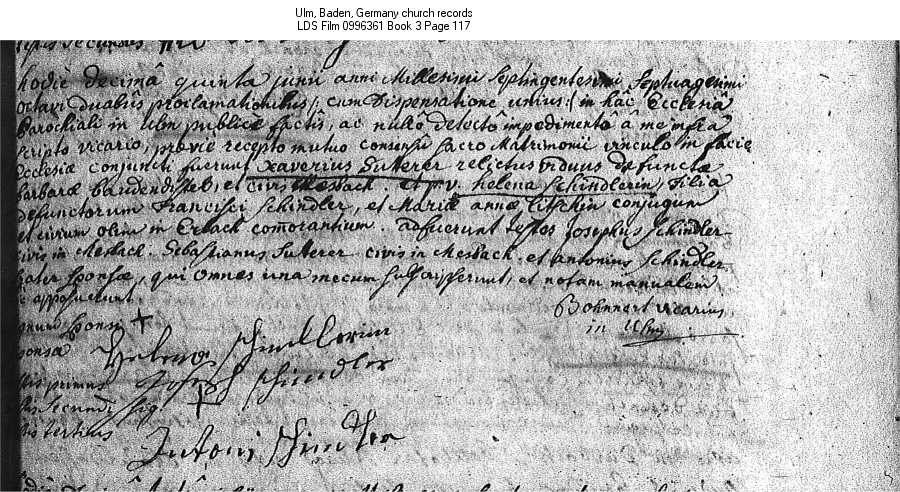 Ulm, Baden, Germany church records
LDS Film 0996361 Book 3 Page 117
hodie decimâ quinta junii anni Millesimi Septingentesimi Septuagesimi
octavi duabus proclamationibus /: cum Dispensatione unius :/ in hâc Ecclesia
Parochiali in Ulm publicè factis, ac nullô detectô impedimentô â me infra
scripto vicario, previè recepto mutuo consensu sacro Matrimonii vinculo in facie
Ecclesiae conjuncti fuerunt Xaverius Suterer relictus viduus defunctae
Barbarae, et civis Mesbach. et helena Schindlerin, Filia
defunctorum Francisci Schindler, et Mariae annae conjugum
et civium olim in Erlach comorantium. adfuerunt testes Josephus Schindler
civis in Mesbach. Sebastianus Sutterer civis in Mesbach, et antonius Schindler
frater sponsae, qui omnes una mecum subscripserunt, et notam manualem
apposuerunt.
Bohnnert vicarius
in Ulm
sponsi +
sponsa Helena Schindlerin
testis primus Joseph Schindler
testis secundi sig +
testis tertius Antoni Schindler